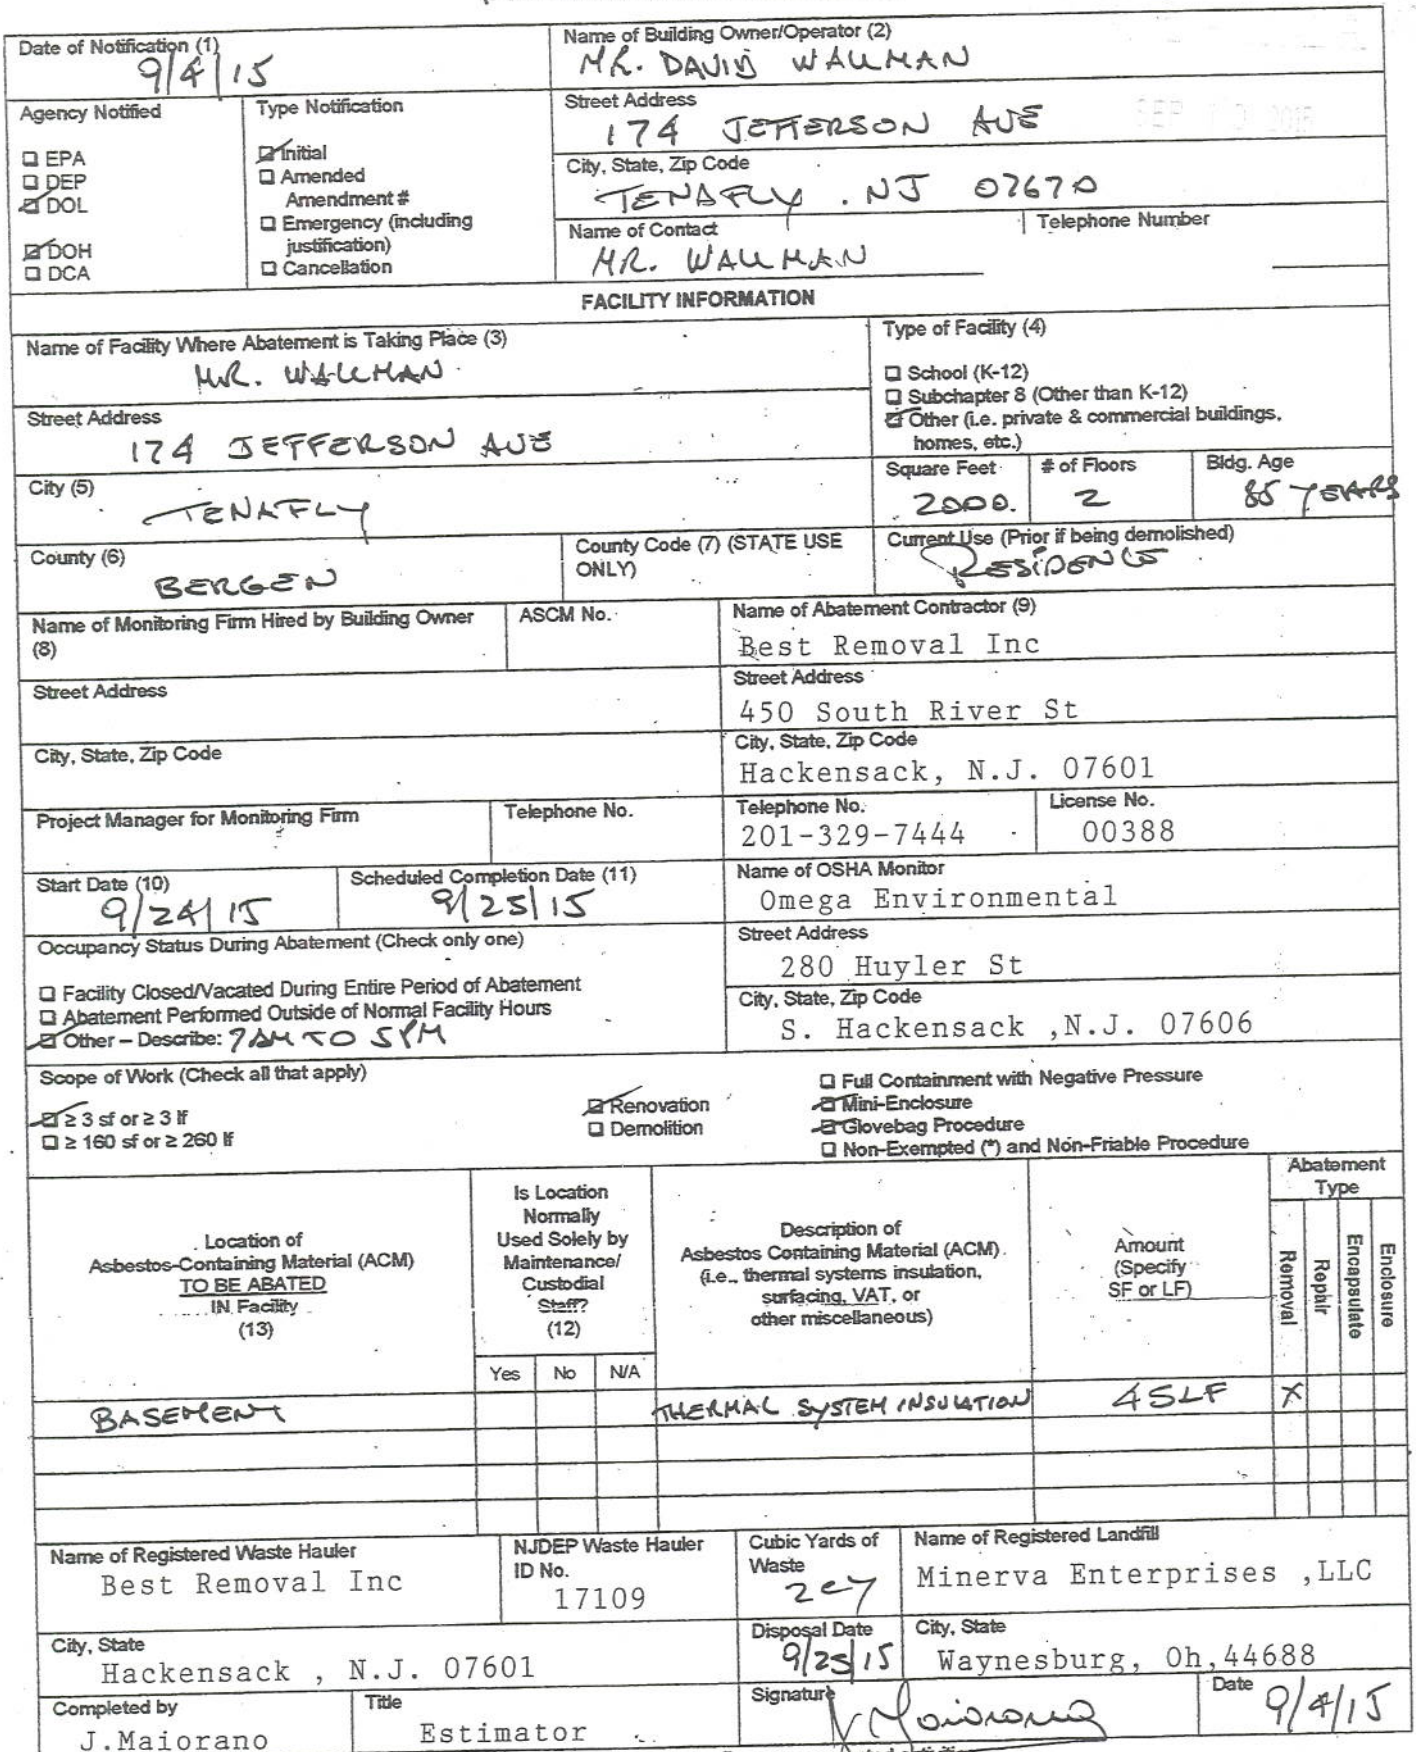 Date of Notification (1)
9/4/15
Name of Building Owner/Operator (2)
MR. DAVID WALLMAN
Agency Notified
EPA
DEP
DOL
DOH
DCA
Type Notification
Initial
Amended
Amendment #
Emergency (including
justification)
Cancellation
Street Address
174 JEFFERSON AVE
City, State, Zip Code
TENAFLY . NJ 07670
Name of Contact
MR. WALLMAN
Telephone Number
FACILITY INFORMATION
Name of Facility Where Abatement is Taking Place (3)
MR. WALLMAN
Street Address
174 JEFFERSON AVE
City (5)
TENAFLY
Type of Facility (4)
School (K-12)
Subchapter 8 (Other than K-12)
Other (i.e. private & commercial buildings,
homes, etc.)
Square Feet
2000.
# of Floors
2
Bldg. Age
85 YEARS
County (6)
BERGEN
County Code (7) (STATE USE
ONLY)
Current Use (Prior if being demolished)
RESIDENCE
Name of Monitoring Firm Hired by Building Owner
(8)
ASCM No.
Name of Abatement Contractor (9)
Best Removal Inc
Street Address
Street Address
450 South River St
City, State, Zip Code
City, State, Zip Code
Hackensack, N.J. 07601
Project Manager for Monitoring Firm
Telephone No.
Telephone No.
201-329-7444
License No.
00388
Start Date (10)
9/24/15
Scheduled Completion Date (11)
9/25/15
Name of OSHA Monitor
Omega Environmental
Occupancy Status During Abatement (Check only one)
Facility Closed/Vacated During Entire Period of Abatement
Abatement Performed Outside of Normal Facility Hours
Other – Describe: 7AM TO 5PM
Street Address
280 Huyler St
City, State, Zip Code
S. Hackensack ,N.J. 07606
Scope of Work (Check all that apply)
≥ 3 sf or ≥ 3 lf
≥ 160 sf or ≥ 260 lf
Renovation
Demolition
Full Containment with Negative Pressure
Mini-Enclosure
Glovebag Procedure
Non-Exempted (*) and Non-Friable Procedure
Location of
Asbestos-Containing Material (ACM)
TO BE ABATED
IN Facility
(13)
Is Location
Normally
Used Solely by
Maintenance/
Custodial
Staff?
(12)
Yes No N/A
Description of
Asbestos Containing Material (ACM)
(i.e., thermal systems insulation,
surfacing, VAT, or
other miscellaneous)
Amount
(Specify
SF or LF)
Abatement
Type
Removal
Repair
Encapsulate
Enclosure
BASEMENT THERMAL SYSTEM INSULATION 45LF X
Name of Registered Waste Hauler
Best Removal Inc
NJDEP Waste Hauler
ID No.
17109
Cubic Yards of
Waste
2cy
Name of Registered Landfill
Minerva Enterprises ,LLC
City, State
Hackensack , N.J. 07601
Disposal Date
9/25/15
City, State
Waynesburg, Oh,44688
Completed by
J.Maiorano
Title
Estimator
Signature
Maiorano
Date
9/4/15